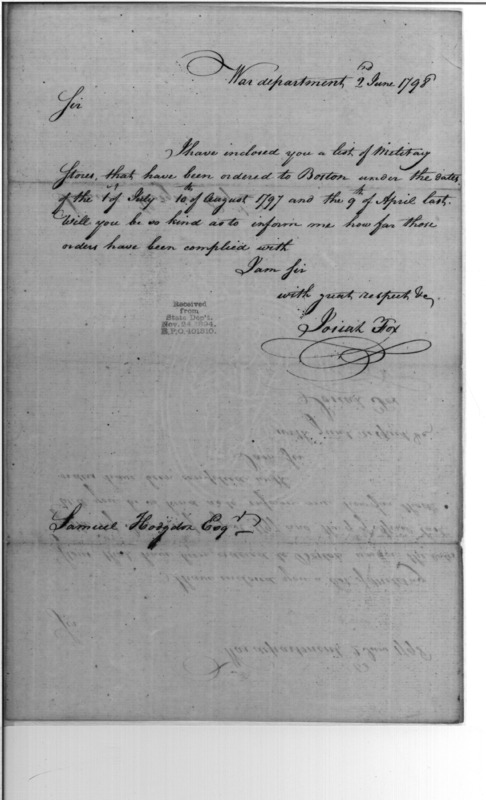 War department 2nd June 1798
Sir
I have inclosed you a list of Military
Stores, that have been ordered to Boston under the dates
of the 1st of July 10th of August 1797 and the 9th of April last.
Will you be so kind as to inform me how far those
orders have been complied with
I am Sir
with great respect &c
Josiah Fox
Received
from
State Dep't.
Nov. 24 1894,
R.P.O. 401810.
Samuel Hodgdon Esqr